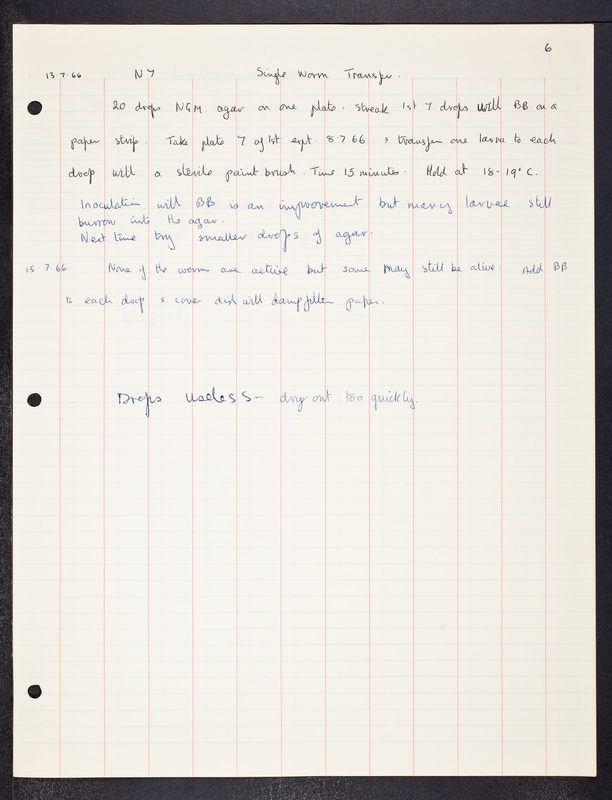 6
13.7.66. N7 Single Worm Transfer.
20 drops NGM agar on one plate. Streak 1st 7 drops with BB on a
paper strip. Take plate 7 of 1st expt. 8 7 66 & transfer one larva to each
drop with a sterile paint brush. Time 15 minutes. Hold at 18-19°C.
Inoculation with BB is an improvement but many larvae still
burrow into the agar.
Next time try smaller drops of agar.
15.7.66. None of the worms are active but some may still be alive. Add BB
to each drop & cover dish with damp filter paper.
Drops useless – dry out too quickly.